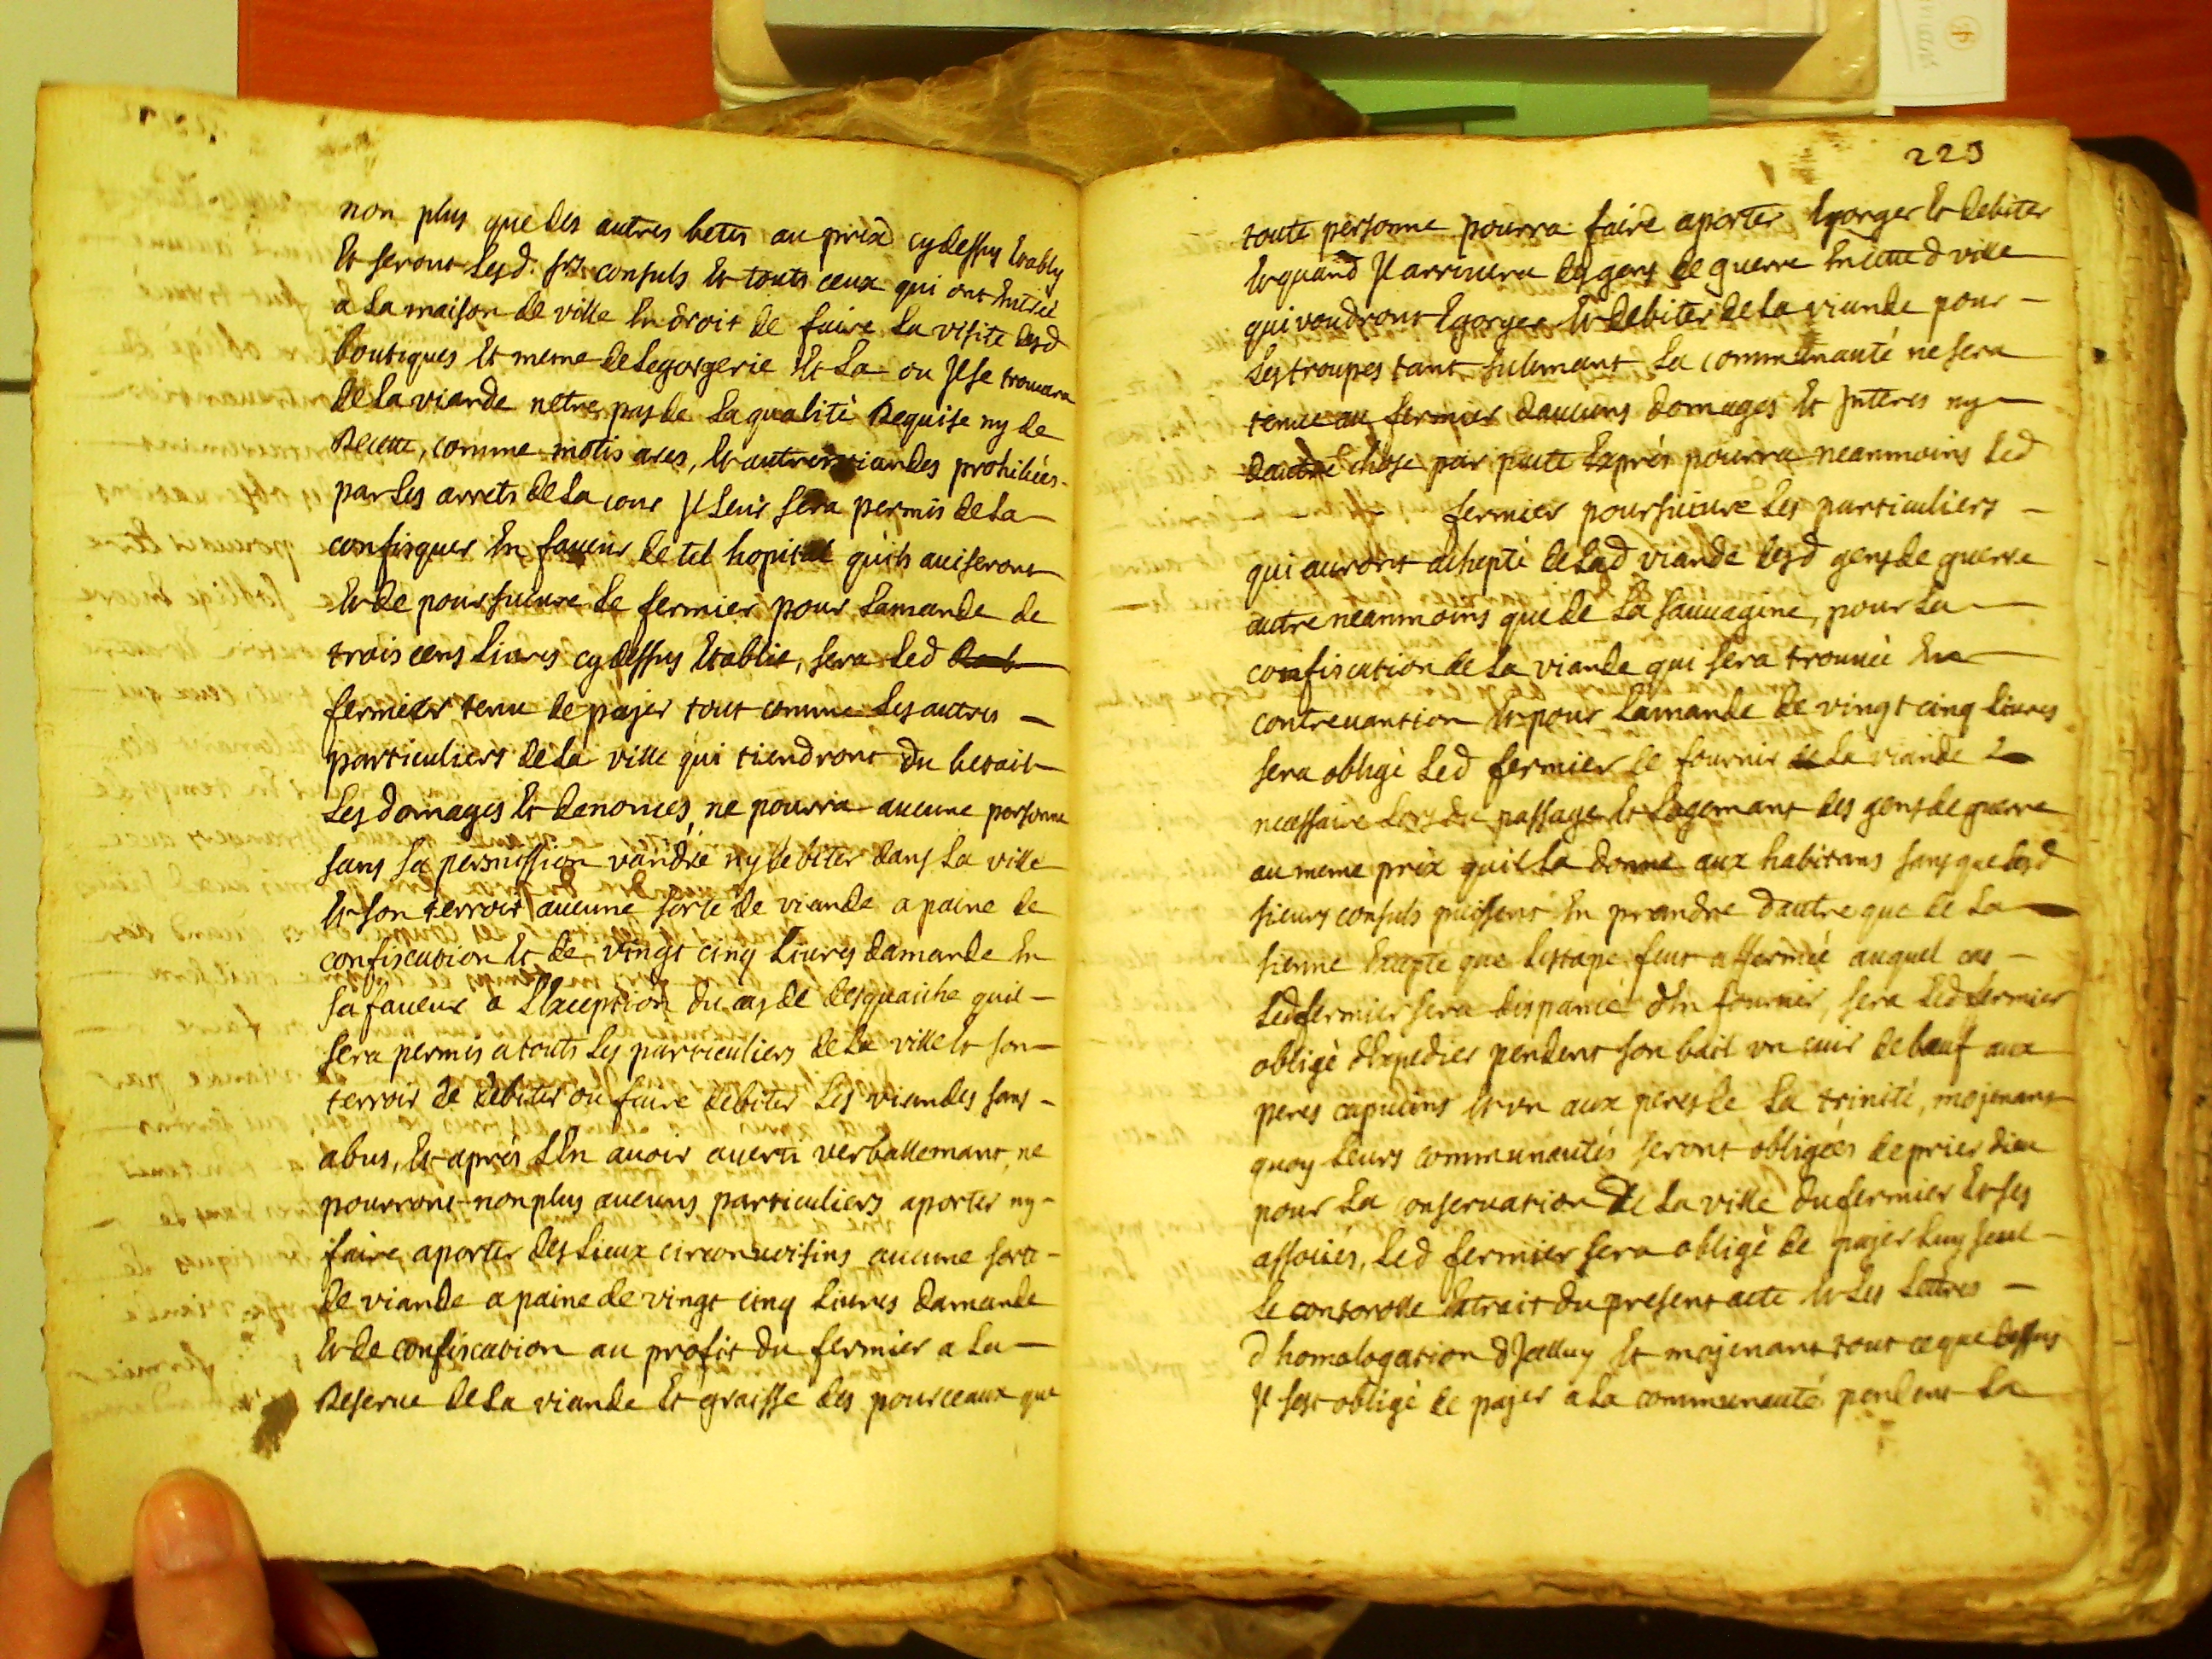 non plus que des autres betes au prix cy dessus Etably
Et seront Lesd. srs consuls Et touts ceux qui ont Entrée
a La maison de ville En droit de faire La visite desd
boutiques Et meme de Legorgerie Et La ou Jl se trouuara
de La viande netre pas de La qualité Requise ny de
Recette, comme motis ares, Et autres viandes prohibées
par Les arrets de La cour Jl Leur sera permis de La
confisquer En faueur de tel hopital quils auiseront
Et de poursuiure Le fermier pour Lamande de
trois cens Liures cy dessus Etablie, sera Led
fermier tenu de payer tout comme Les autres
particuliers de La ville qui tiendront du betail
Les domages Et denonces, ne pourra aucune personne
sans sa permission vandre ny debiter dans La ville
Et son terroir aucune sorte de viande a paine de
confiscation Et de vingt cinq Liures damande En
sa faueur a LException du cas de desquaiche quil
sera permis a touts Les particuliers de La ville Et son
terroir de debiter ou faire debiter Les viandes sans
abus, Et aprés LEn auoir auerti verballemant, ne
pourront non plus aucuns particuliers aporter ny
faire aporter des Lieux circonuoisins aucune sorte
de viande a paine de vingt cinq Liures damande
Et de confiscation au profit du fermier a La
Reserue de La viande Et graisse des pourceaux que
223
toute personne pourra faire aporter Egorger Et debiter
Et quand Jl arriuera des gens de guerre En cette d ville
qui voudront Egorger Et debiter de La viande pour
Les troupes tant sulemant La communauté ne sera
tenue au fermier daucuns domages Et Jnteres ny
dautre chose par pacte Exprés pourra neanmoins Led
fermier poursuiure Les particuliers
qui auront achepté de Lad viande desd gens de guerre
autre neanmoins que de La sauuagine, pour La
confiscation de La viande qui sera trouuée En
contreuantion Et pour Lamande de vingt cinq Liures
sera obligé Led fermier de fournir La viande
necessaire Lors du passage Et Logemant des gens de guerre
au meme prix quil La donne aux habitans sans que Lesd
sieurs consuls puissent En prandre dautre que de La
sienne Excepté que Lestape feut affermée auquel cas
Led fermier sera dispancé dEn fournir, sera Led fermier
obligé dExpedier pendent son bail vn cuir de bœuf aux
peres capucins Et vn aux peres de La trinité, mojenant
quoy Leurs communautés seront obligées de prier dieu
pour La conseruation de La ville du fermier Et ses
assoiiés, Led fermier sera obligé de payer Luy seul
Le controlle Extrait du present acte Et Les Lettres
dhomologation dJcelluy Et mojenant tout ce que dessus
Jl sest obligé de payer a La communauté pendent La